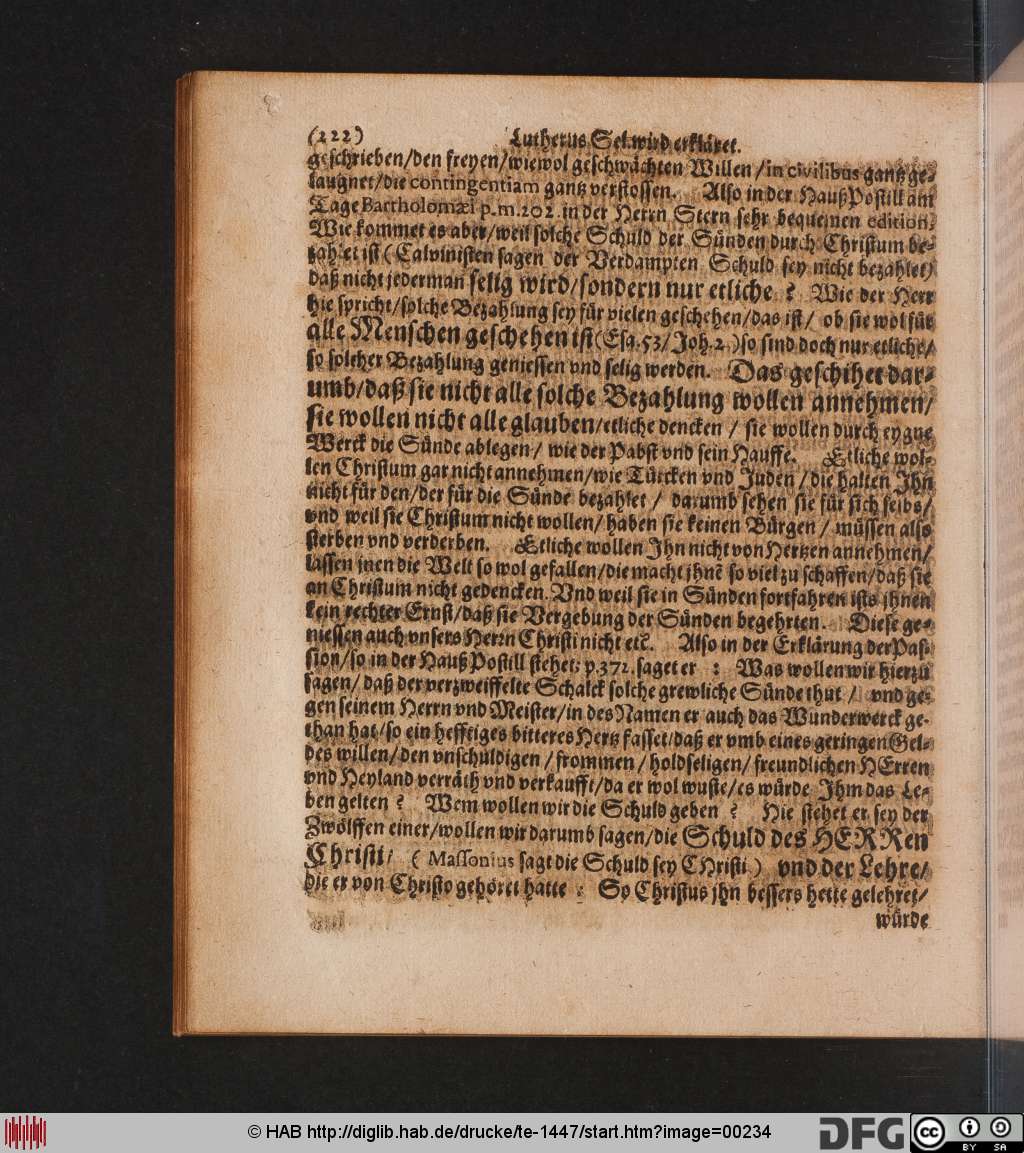 (222) Lutherus Sel. wird erkläret.
geschrieben/den freyen/wiewol geschwächten Willen/in civilibus gantz ge-
laugnet/die contingentiam gantz verstossen. Also in der HaußPostill am
Tage Bartholomæi p.m.202. in der Herrn Stern sehr bequemen edition.
Wie kommet es aber/weil solche Schuld der Sünden durch Christum be-
zahlet ist (Calvinisten sagen der Verdampten Schuld sey nicht bezahlet)
daß nicht jederman selig wird/sondern nur etliche? Wie der Herr
hie spricht/solche Bezahlung sey für vielen geschehen/das ist/ ob sie wol für
alle Menschen geschehen ist (Esa.53/Joh.2.) so sind doch nur etliche/
so solcher Bezahlung geniessen vnd selig werden. Das geschihet dar-
umb/daß sie nicht alle solche Bezahlung wollen annehmen/
sie wollen nicht alle glauben/etliche dencken / sie wollen durch eygne
Werck die Sünde ablegen/ wie der Pabst vnd sein Hauffe. Etliche wol-
len Christum gar nicht annehmen/wie Türcken vnd Juden /die halten Ihn
nicht für den/der für die Sünde bezahlet / darumb sehen sie für sich selbs/
vnd weil sie Christum nicht wollen/haben sie keinen Bürgen / müssen also
sterben vnd verderben. Etliche wollen Ihn nicht von Hertzen annehmen/
lassen jnen die Welt so wol gefallen/die macht jhnē so viel zu schaffen/daß sie
an Christum nicht gedencken. Vnd weil sie in Sünden fortfahren ists ihnen
kein rechter Ernst/daß sie Vergebung der Sünden begehrten. Diese ge-
niessen auch vnsers Herrn Christi nicht etc. Also in der Erklärung der Pas-
sion/so in der HaußPostill stehet; p.372. saget er : Was wollen wir hierzu
sagen/ daß der verzweiffelte Schalck solche grewliche Sünde thut / vnd ge-
gen seinem Herrn vnd Meister/in des Namen er auch das Wunderwerck ge-
than hat/so ein hefftiges bitteres Hertz fasset/daß er vmb eines geringen Gel-
des willen/den vnschuldigen /frommen / holdseligen/freundlichen HErren
vnd Heyland verräth vnd verkaufft/da er wol wuste/es würde Ihm das Le-
ben gelten? Wem wollen wir die Schuld geben ? Hie stehet er sey der
Zwölffen einer/wollen wir darumb sagen/die Schuld des HERRen
Christi/ ( Massonius sagt die Schuld sey CHristi.) vnd der Lehre/
die er von Christo gehöret hatte : So Christus jhn bessers hette gelehret/
würde
© HAB http://diglib.hab.de/drucke/te-1447/start.htm?image=00234
DFG cc BY SA